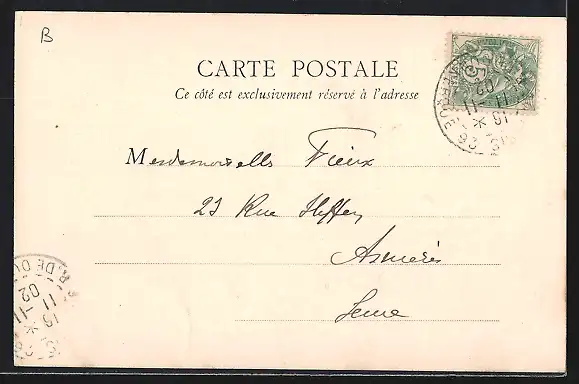 B
CARTE POSTALE
Ce côté est exclusivement réservé à l'adresse
Mesdemoiselles Fieux
23 Rue Steffen
Asnières
Seine
5
11-11
02
R. DE DU
19
11-11
02